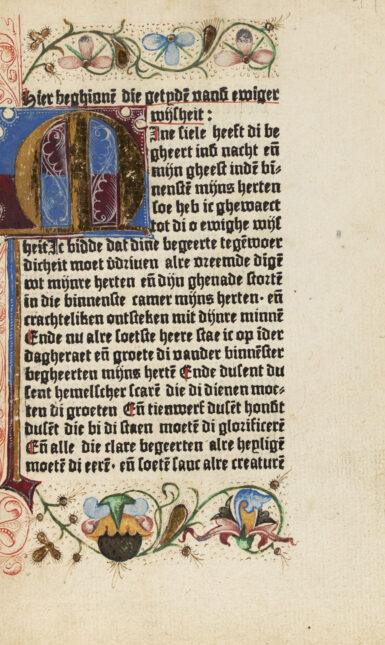 Hier beghionē die getydē vand ewiger
wijsheit :
Mine siele heeft di be
gheert ind nacht eñ
mijn gheest indē bi-
nenstē mijns herten
soe heb ic ghewaect
tot di o ewighe wijs
heit Ic bidde dat dine begeerte tegēwoer
dicheit moet vdriuen alre vreemde digē
wt mijnre herten eñ dijn ghenade stortē
in die binnenste camer mijns herten · eñ
crachteliken ontsteken mit dijnre minnē
Ende nu alre soetste heere stae ic op ider
dagheraet eñ groete di vander binnēster
begheerten mijns hertē Ende dusent du
sent hemelscher scarē die di dienen moe-
ten di groeten Eñ tienwerf dusēt hondt
dusēt die bi di staen moetē di glorificerē
Eñ alle die clare begeerten alre heylige
moetē di eerē · eñ soetē sanc alre creaturē